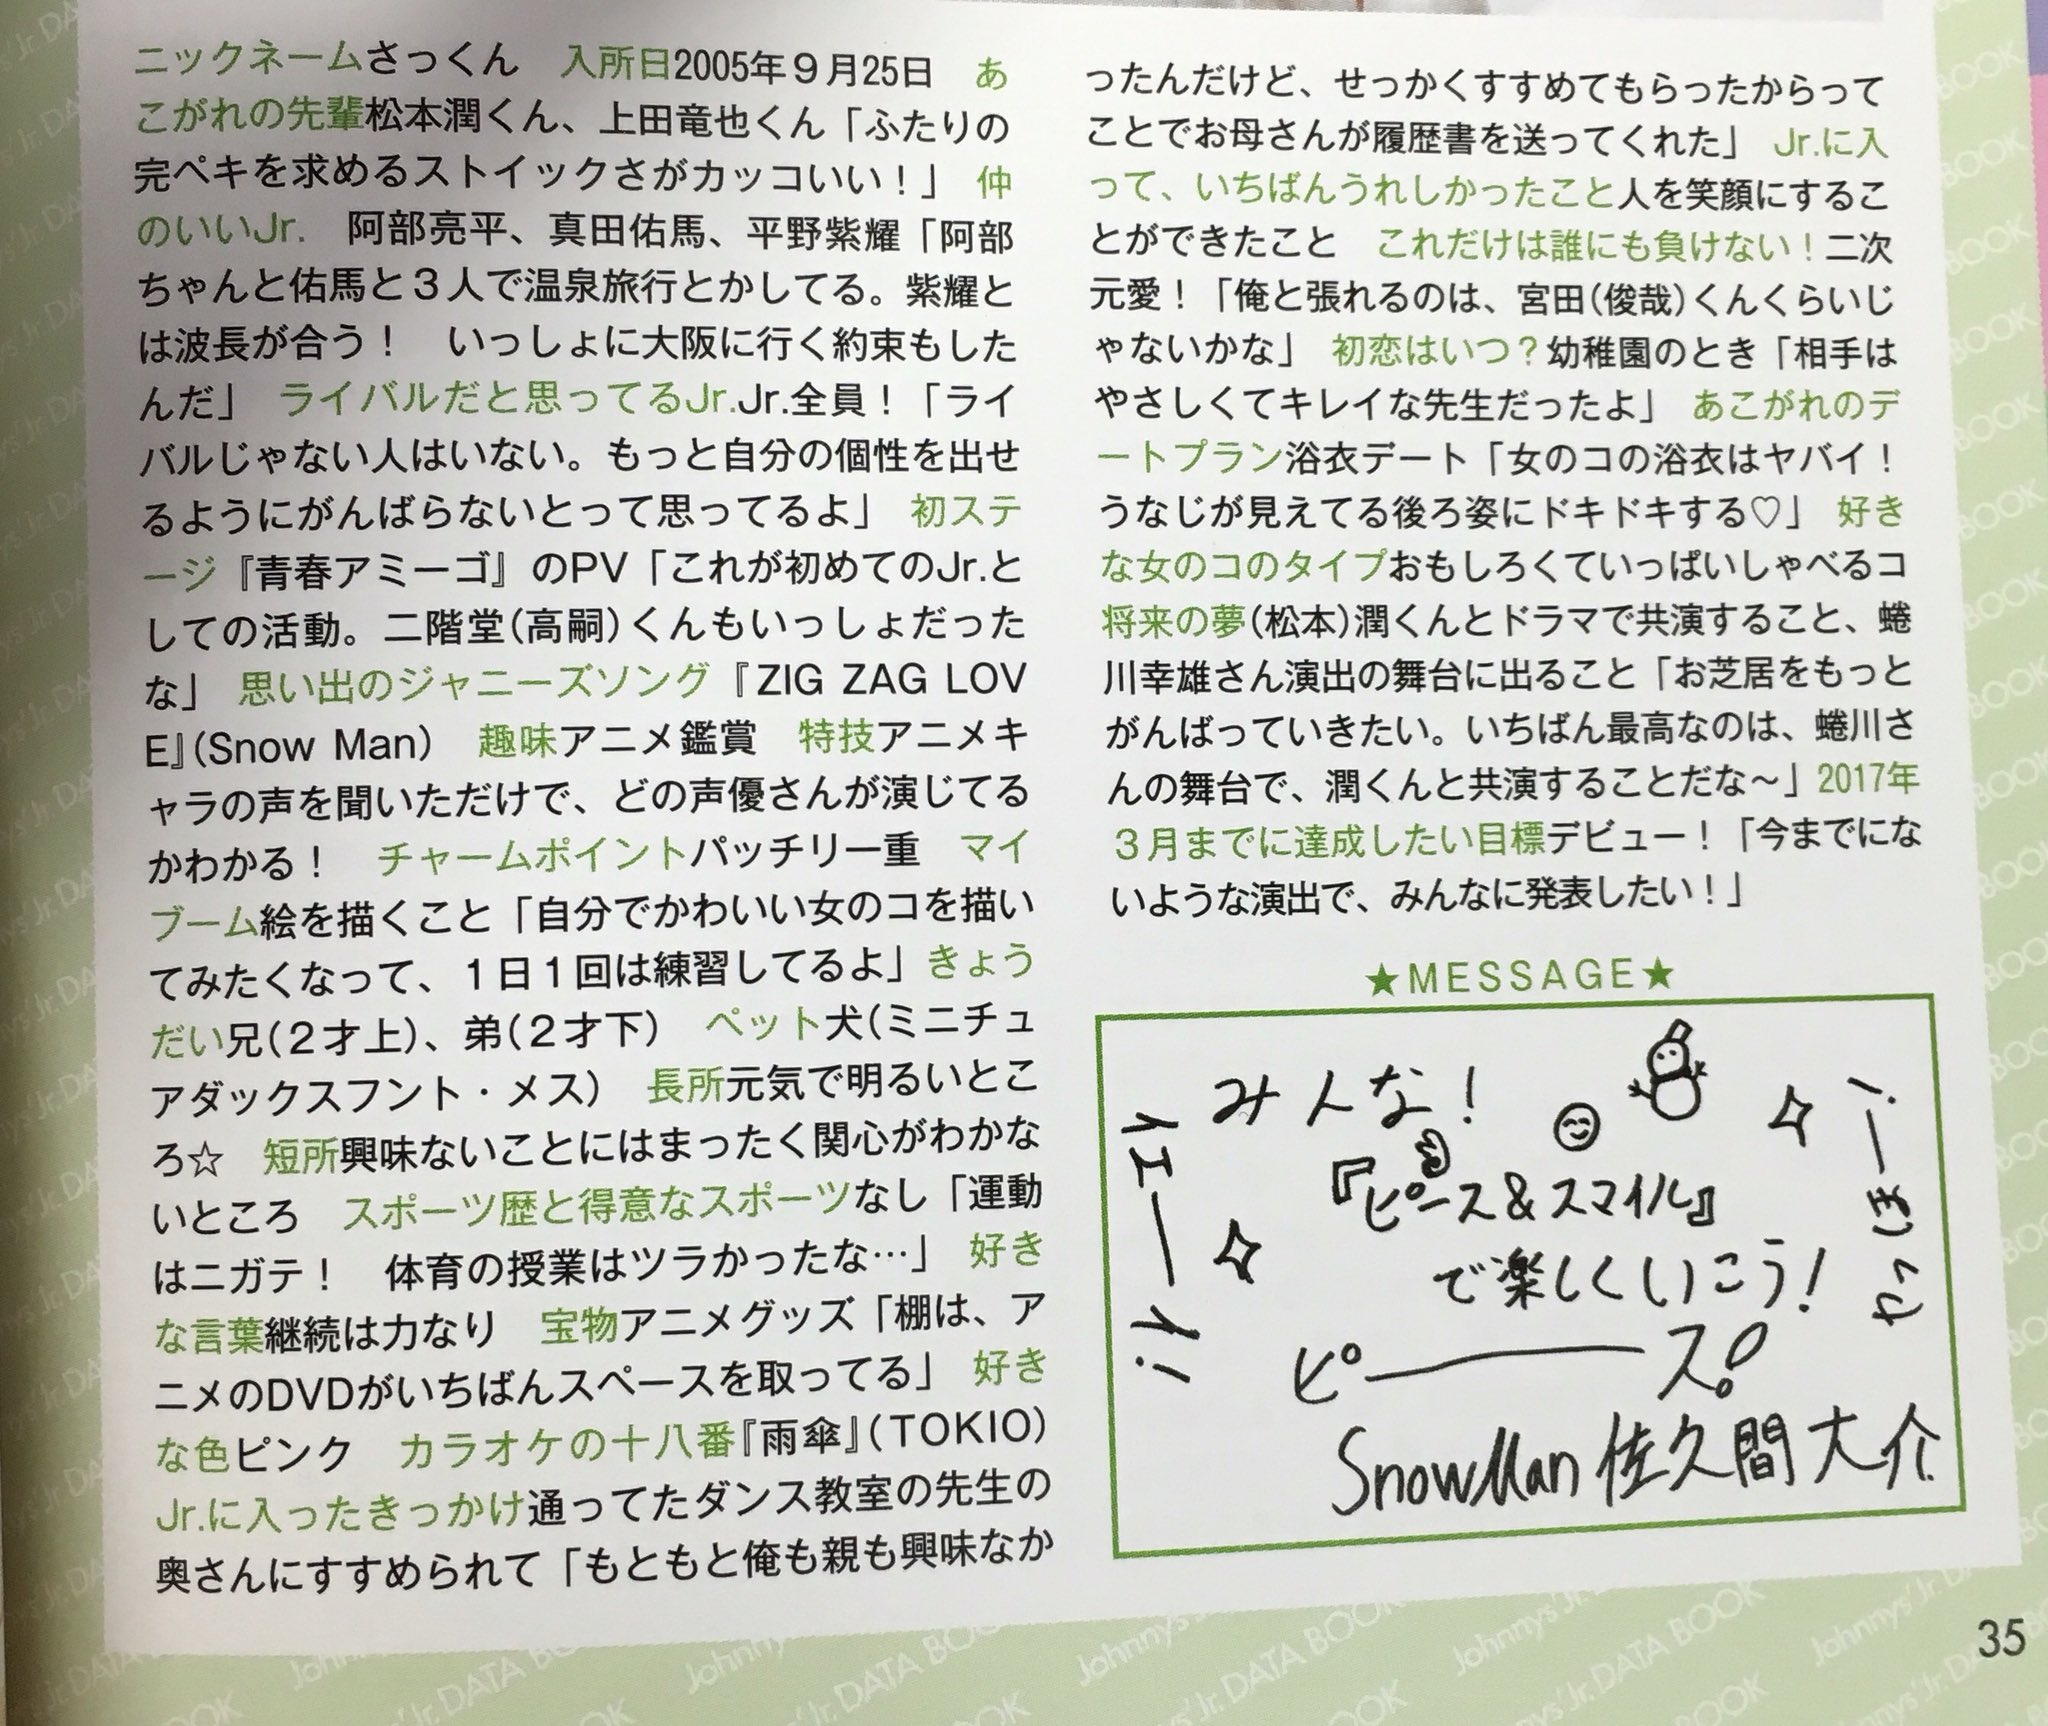 ニックネームさっくん　入所日2005年９月25日　あ
こがれの先輩松本潤くん、上田竜也くん「ふたりの
完ペキを求めるストイックさがカッコいい！」　仲
のいいJr.　阿部亮平、真田佑馬、平野紫耀「阿部
ちゃんと佑馬と３人で温泉旅行とかしてる。紫耀と
は波長が合う！　いっしょに大阪に行く約束もした
んだ」　ライバルだと思ってるJr.Jr.全員！「ライ
バルじゃない人はいない。もっと自分の個性を出せ
るようにがんばらないとって思ってるよ」　初ステ
ージ『青春アミーゴ』のPV「これが初めてのJr.と
しての活動。二階堂（高嗣）くんもいっしょだった
な」　思い出のジャニーズソング『ZIG ZAG LOV
E』（Snow Man）　趣味アニメ鑑賞　特技アニメキ
ャラの声を聞いただけで、どの声優さんが演じてる
かわかる！　チャームポイントパッチリ一重　マイ
ブーム絵を描くこと「自分でかわいい女のコを描い
てみたくなって、１日１回は練習してるよ」きょう
だい兄（２才上）、弟（２才下）　ペット犬（ミニチュ
アダックスフント・メス）　長所元気で明るいとこ
ろ☆　短所興味ないことにはまったく関心がわかな
いところ　スポーツ歴と得意なスポーツなし「運動
はニガテ！　体育の授業はツラかったな…」　好き
な言葉継続は力なり　宝物アニメグッズ「棚は、ア
ニメのDVDがいちばんスペースを取ってる」　好き
な色ピンク　カラオケの十八番『雨傘』（TOKIO）
Jr.に入ったきっかけ通ってたダンス教室の先生の
奥さんにすすめられて「もともと俺も親も興味なか
ったんだけど、せっかくすすめてもらったからって
ことでお母さんが履歴書を送ってくれた」　Jr.に入
って、いちばんうれしかったこと人を笑顔にするこ
とができたこと　これだけは誰にも負けない！二次
元愛！「俺と張れるのは、宮田（俊哉）くんくらいじ
ゃないかな」　初恋はいつ？幼稚園のとき「相手は
やさしくてキレイな先生だったよ」　あこがれのデ
ートプラン浴衣デート「女のコの浴衣はヤバイ！
うなじが見えてる後ろ姿にドキドキする♡」　好き
な女のコのタイプおもしろくていっぱいしゃべるコ
将来の夢（松本）潤くんとドラマで共演すること、蜷
川幸雄さん演出の舞台に出ること「お芝居をもっと
がんばっていきたい。いちばん最高なのは、蜷川さ
んの舞台で、潤くんと共演することだな〜」2017年
３月までに達成したい目標デビュー！「今までにな
いような演出で、みんなに発表したい！」
★MESSAGE★
みんな！
『ピース＆スマイル』
で楽しくいこう！
ピーーース！
イエーーイ！
SnowMan 佐久間大介
Johnnys' Jr. DATA BOOK
35